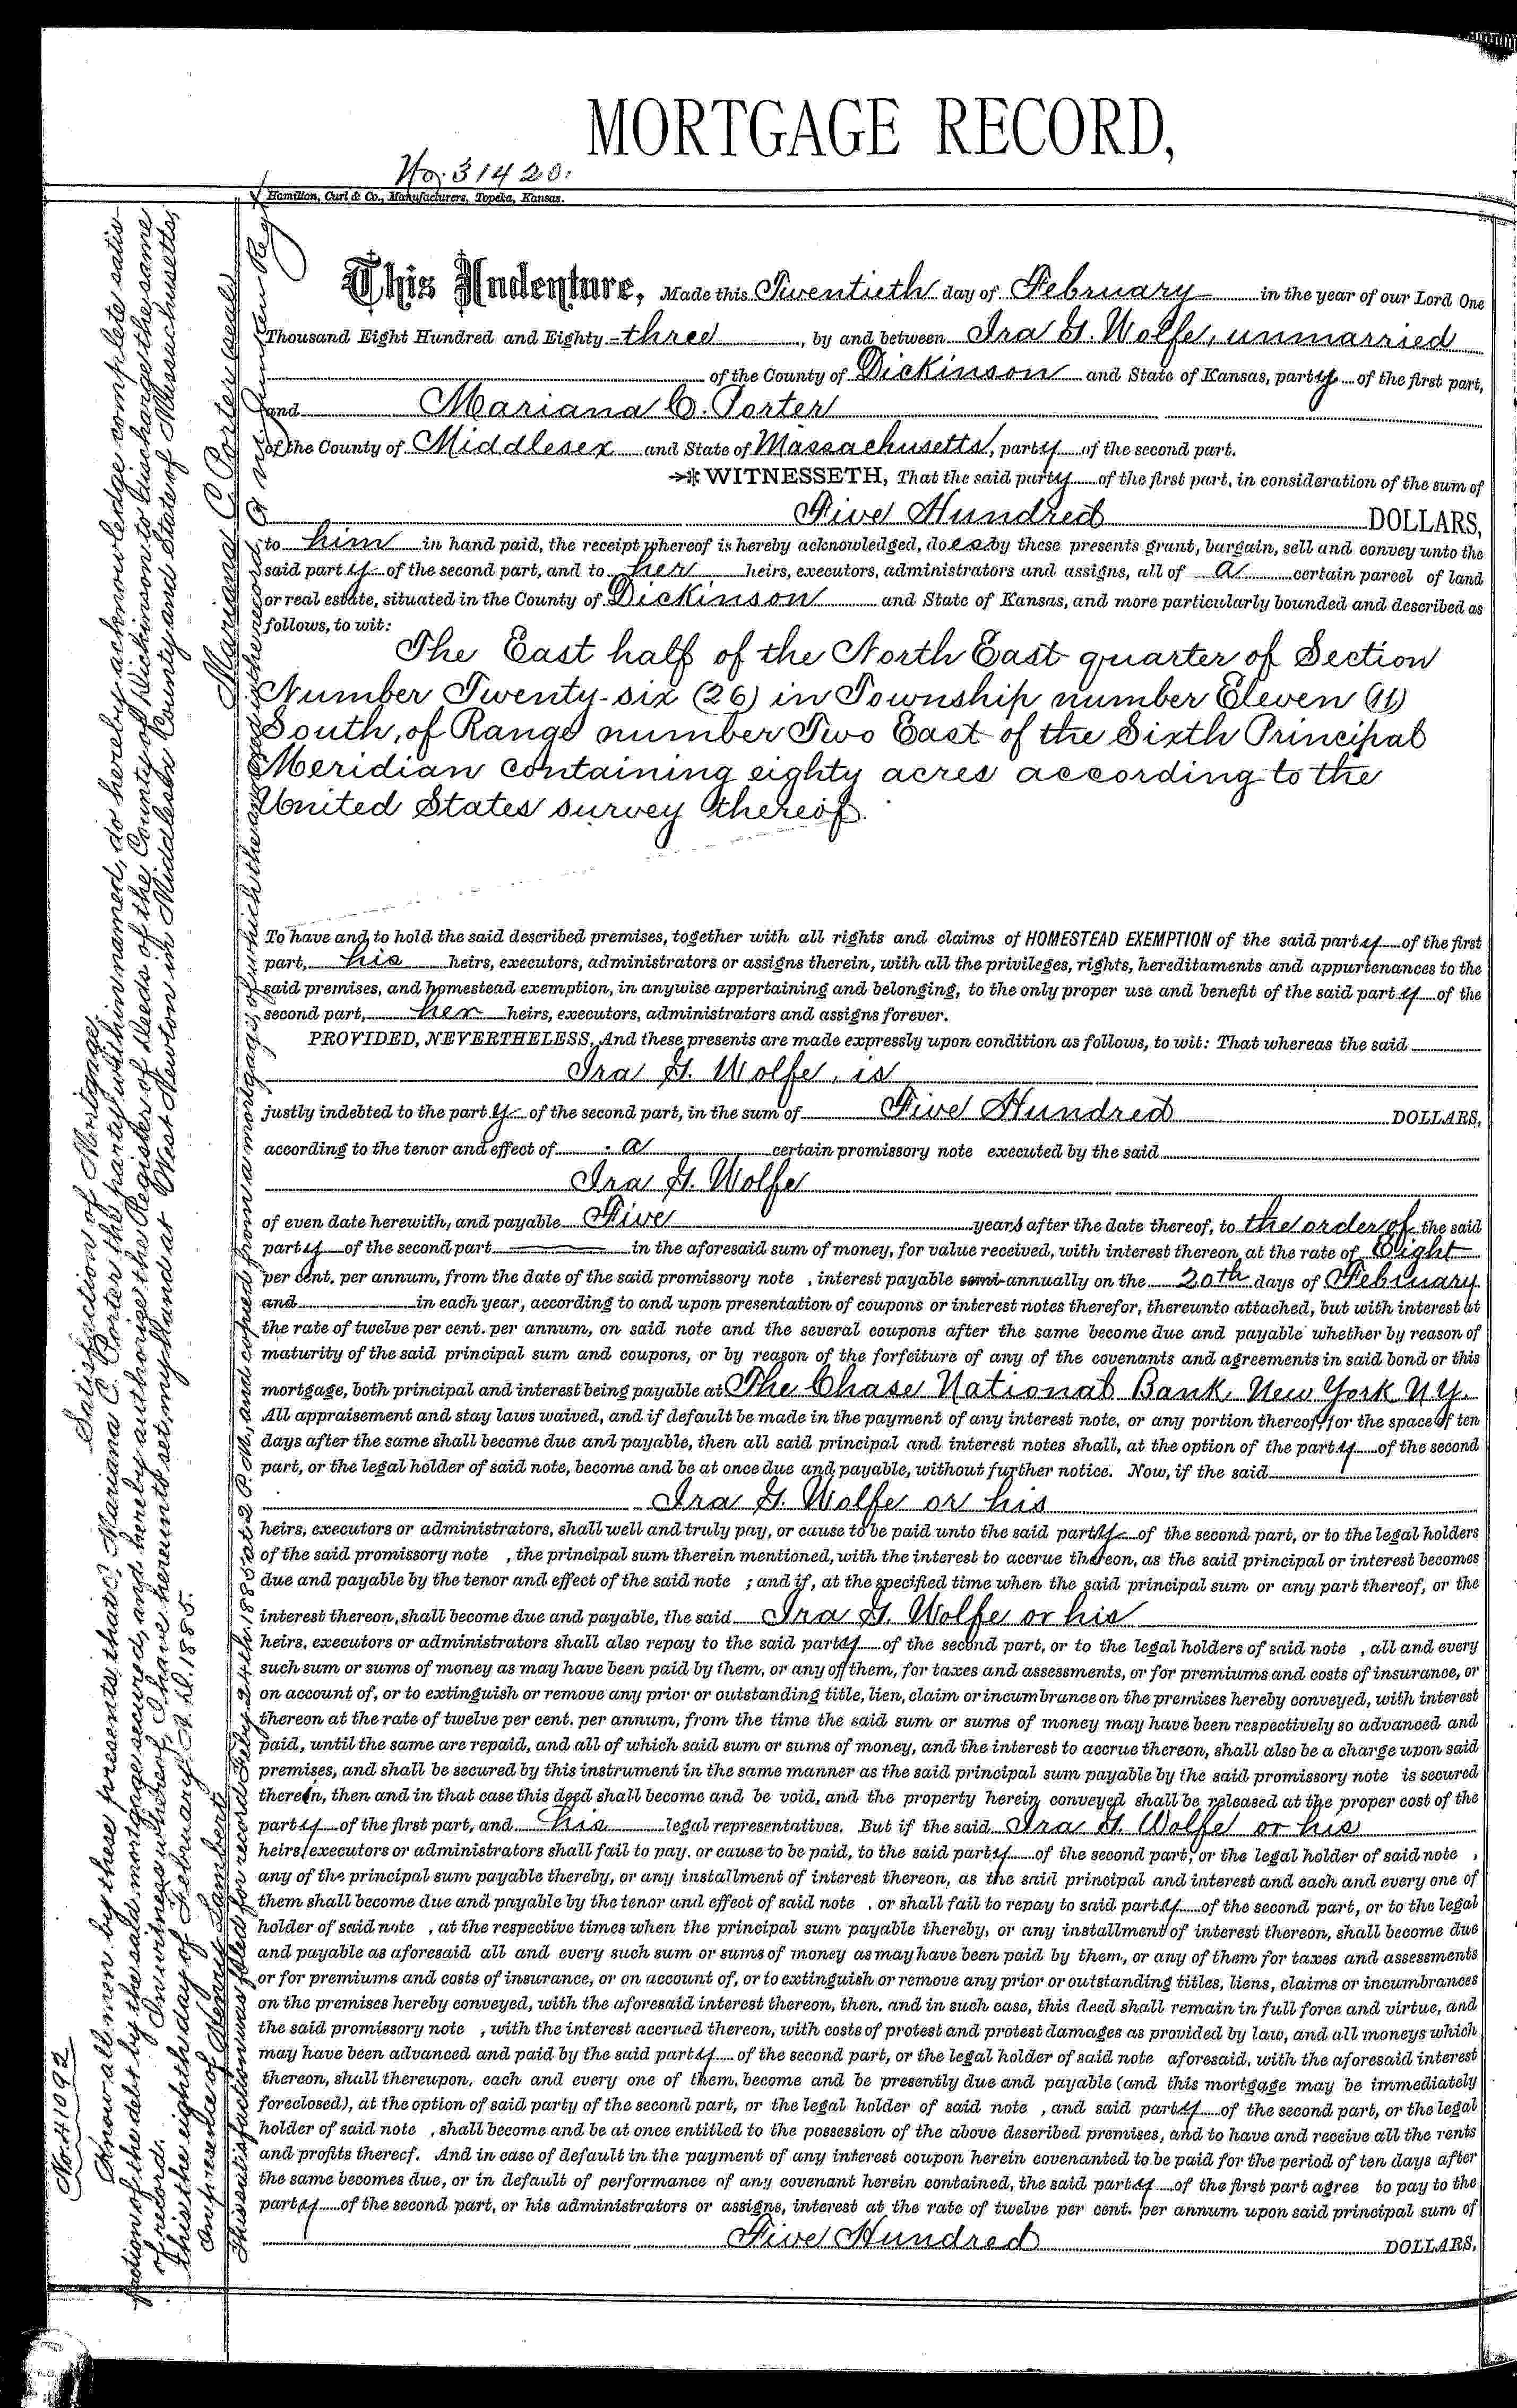 MORTGAGE RECORD,
No. 31420.
Hamilton, Curl & Co., Manufacturers, Topeka, Kansas.
This Indenture, Made this Twentieth day of February in the year of our Lord One
Thousand Eight Hundred and Eighty-three, by and between Ira G. Wolfe, unmarried
of the County of Dickinson and State of Kansas, party of the first part,
and Mariana C. Porter
of the County of Middlesex and State of Massachusetts, party of the second part.
WITNESSETH, That the said party of the first part, in consideration of the sum of
Five Hundred DOLLARS,
to him in hand paid, the receipt whereof is hereby acknowledged, does by these presents grant, bargain, sell and convey unto the
said party of the second part, and to her heirs, executors, administrators and assigns, all of a certain parcel of land
or real estate, situated in the County of Dickinson and State of Kansas, and more particularly bounded and described as
follows, to wit:
The East half of the North East quarter of Section
Number Twenty-six (26) in Township number Eleven (11)
South, of Range number Two East of the Sixth Principal
Meridian containing eighty acres according to the
United States survey thereof.
To have and to hold the said described premises, together with all rights and claims of HOMESTEAD EXEMPTION of the said party of the first
part, his heirs, executors, administrators or assigns therein, with all the privileges, rights, hereditaments and appurtenances to the
said premises, and homestead exemption, in anywise appertaining and belonging, to the only proper use and benefit of the said party of the
second part, her heirs, executors, administrators and assigns forever.
PROVIDED, NEVERTHELESS, And these presents are made expressly upon condition as follows, to wit: That whereas the said
Ira G. Wolfe, is
justly indebted to the party of the second part, in the sum of Five Hundred DOLLARS,
according to the tenor and effect of a certain promissory note executed by the said
Ira G. Wolfe
of even date herewith, and payable Five years after the date thereof, to the order of the said
party of the second part in the aforesaid sum of money, for value received, with interest thereon at the rate of Eight
per cent. per annum, from the date of the said promissory note , interest payable semi-annually on the 20th days of February
and in each year, according to and upon presentation of coupons or interest notes therefor, thereunto attached, but with interest at
the rate of twelve per cent. per annum, on said note and the several coupons after the same become due and payable whether by reason of
maturity of the said principal sum and coupons, or by reason of the forfeiture of any of the covenants and agreements in said bond or this
mortgage, both principal and interest being payable at The Chase National Bank, New York N.Y.
All appraisement and stay laws waived, and if default be made in the payment of any interest note, or any portion thereof, for the space of ten
days after the same shall become due and payable, then all said principal and interest notes shall, at the option of the party of the second
part, or the legal holder of said note, become and be at once due and payable, without further notice. Now, if the said
Ira G. Wolfe or his
heirs, executors or administrators, shall well and truly pay, or cause to be paid unto the said party of the second part, or to the legal holders
of the said promissory note , the principal sum therein mentioned, with the interest to accrue thereon, as the said principal or interest becomes
due and payable by the tenor and effect of the said note ; and if, at the specified time when the said principal sum or any part thereof, or the
interest thereon, shall become due and payable, the said Ira G. Wolfe or his
heirs, executors or administrators shall also repay to the said party of the second part, or to the legal holders of said note , all and every
such sum or sums of money as may have been paid by them, or any of them, for taxes and assessments, or for premiums and costs of insurance, or
on account of, or to extinguish or remove any prior or outstanding title, lien, claim or incumbrance on the premises hereby conveyed, with interest
thereon at the rate of twelve per cent. per annum, from the time the said sum or sums of money may have been respectively so advanced and
paid, until the same are repaid, and all of which said sum or sums of money, and the interest to accrue thereon, shall also be a charge upon said
premises, and shall be secured by this instrument in the same manner as the said principal sum payable by the said promissory note is secured
therein, then and in that case this deed shall become and be void, and the property herein conveyed shall be released at the proper cost of the
party of the first part, and his legal representatives. But if the said Ira G. Wolfe or his
heirs, executors or administrators shall fail to pay, or cause to be paid, to the said party of the second part, or the legal holder of said note ,
any of the principal sum payable thereby, or any installment of interest thereon, as the said principal and interest and each and every one of
them shall become due and payable by the tenor and effect of said note , or shall fail to repay to said party of the second part, or to the legal
holder of said note , at the respective times when the principal sum payable thereby, or any installment of interest thereon, shall become due
and payable as aforesaid all and every such sum or sums of money as may have been paid by them, or any of them for taxes and assessments
or for premiums and costs of insurance, or on account of, or to extinguish or remove any prior or outstanding titles, liens, claims or incumbrances
on the premises hereby conveyed, with the aforesaid interest thereon, then, and in such case, this deed shall remain in full force and virtue, and
the said promissory note , with the interest accrued thereon, with costs of protest and protest damages as provided by law, and all moneys which
may have been advanced and paid by the said party of the second part, or the legal holder of said note aforesaid, with the aforesaid interest
thereon, shall thereupon, each and every one of them, become and be presently due and payable (and this mortgage may be immediately
foreclosed), at the option of said party of the second part, or the legal holder of said note , and said party of the second part, or the legal
holder of said note , shall become and be at once entitled to the possession of the above described premises, and to have and receive all the rents
and profits thereof. And in case of default in the payment of any interest coupon herein covenanted to be paid for the period of ten days after
the same becomes due, or in default of performance of any covenant herein contained, the said party of the first part agree to pay to the
party of the second part, or his administrators or assigns, interest at the rate of twelve per cent. per annum upon said principal sum of
Five Hundred DOLLARS,
No. 41092
Satisfaction of Mortgage.
Know all men by these presents, that I, Mariana C. Porter the party within named, do hereby acknowledge complete satis-
faction of the debt by the said mortgage secured, and hereby authorize the Register of Deeds of the County of Dickinson to discharge the same
of record. In witness whereof, I have hereunto set my hand at West Newton in Middlesex County and State of Massachusetts,
this the eighth day of February A.D. 1885.
In presence of Henry Lambert Mariana C. Porter (seal)
This satisfaction was filed for record Feby 24th 1885 at 2 P.M., and copied from a mortgage of which the record